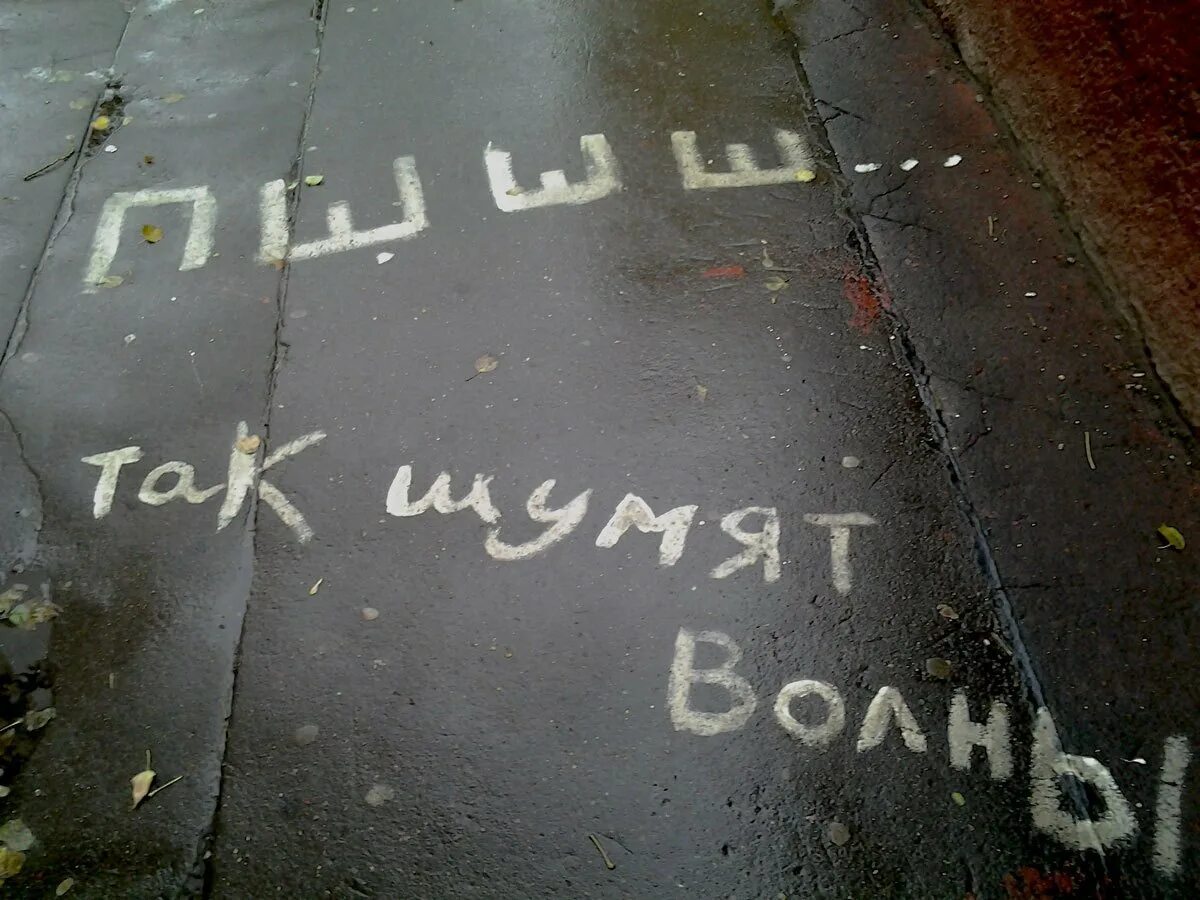 ПШШШ...
так шумят
Волны